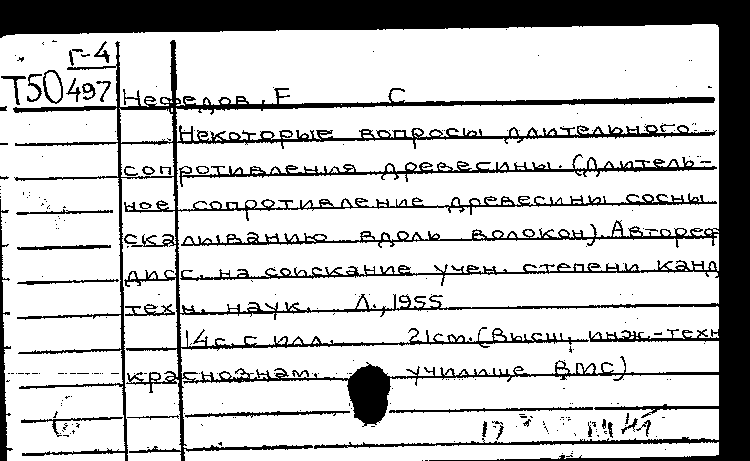 Г-4
Т50 497
Нефедов, Е С
Некоторые вопросы длительного
сопротивления древесины. (Длитель-
ное сопротивление древесины сосны
скалыванию вдоль волокон). Автореф
дисс. на соискание учен. степени канд
техн. наук. Л., 1955
14с. с илл. 21см. (Высш. инж.-техн
краснознам. училище ВМС).